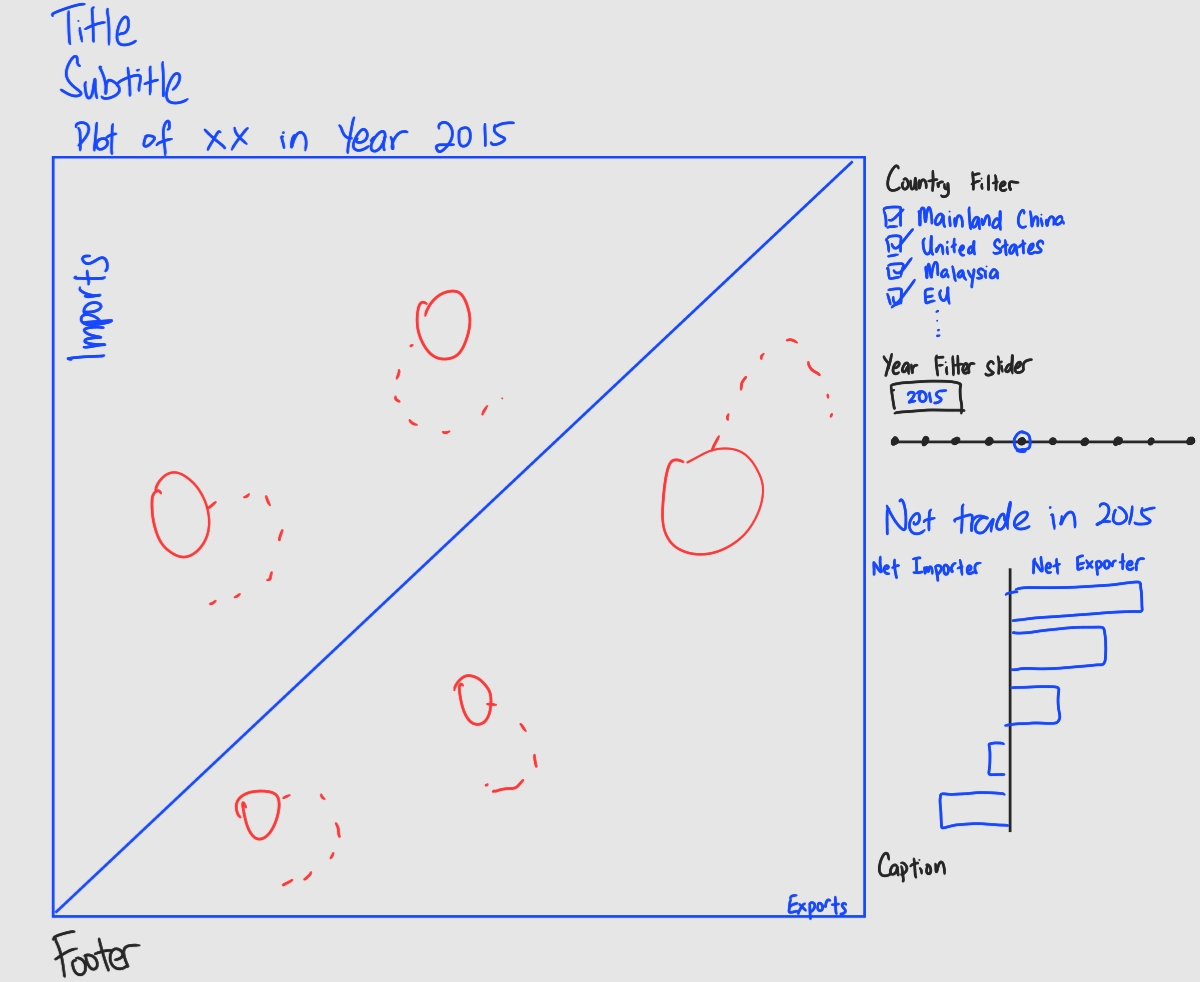 Title
Subtitle
Plot of XX in Year 2015
Imports
Exports
Footer
Country Filter
Mainland China
United States
Malaysia
EU
Year Filter slider
2015
Net trade in 2015
Net Importer
Net Exporter
Caption